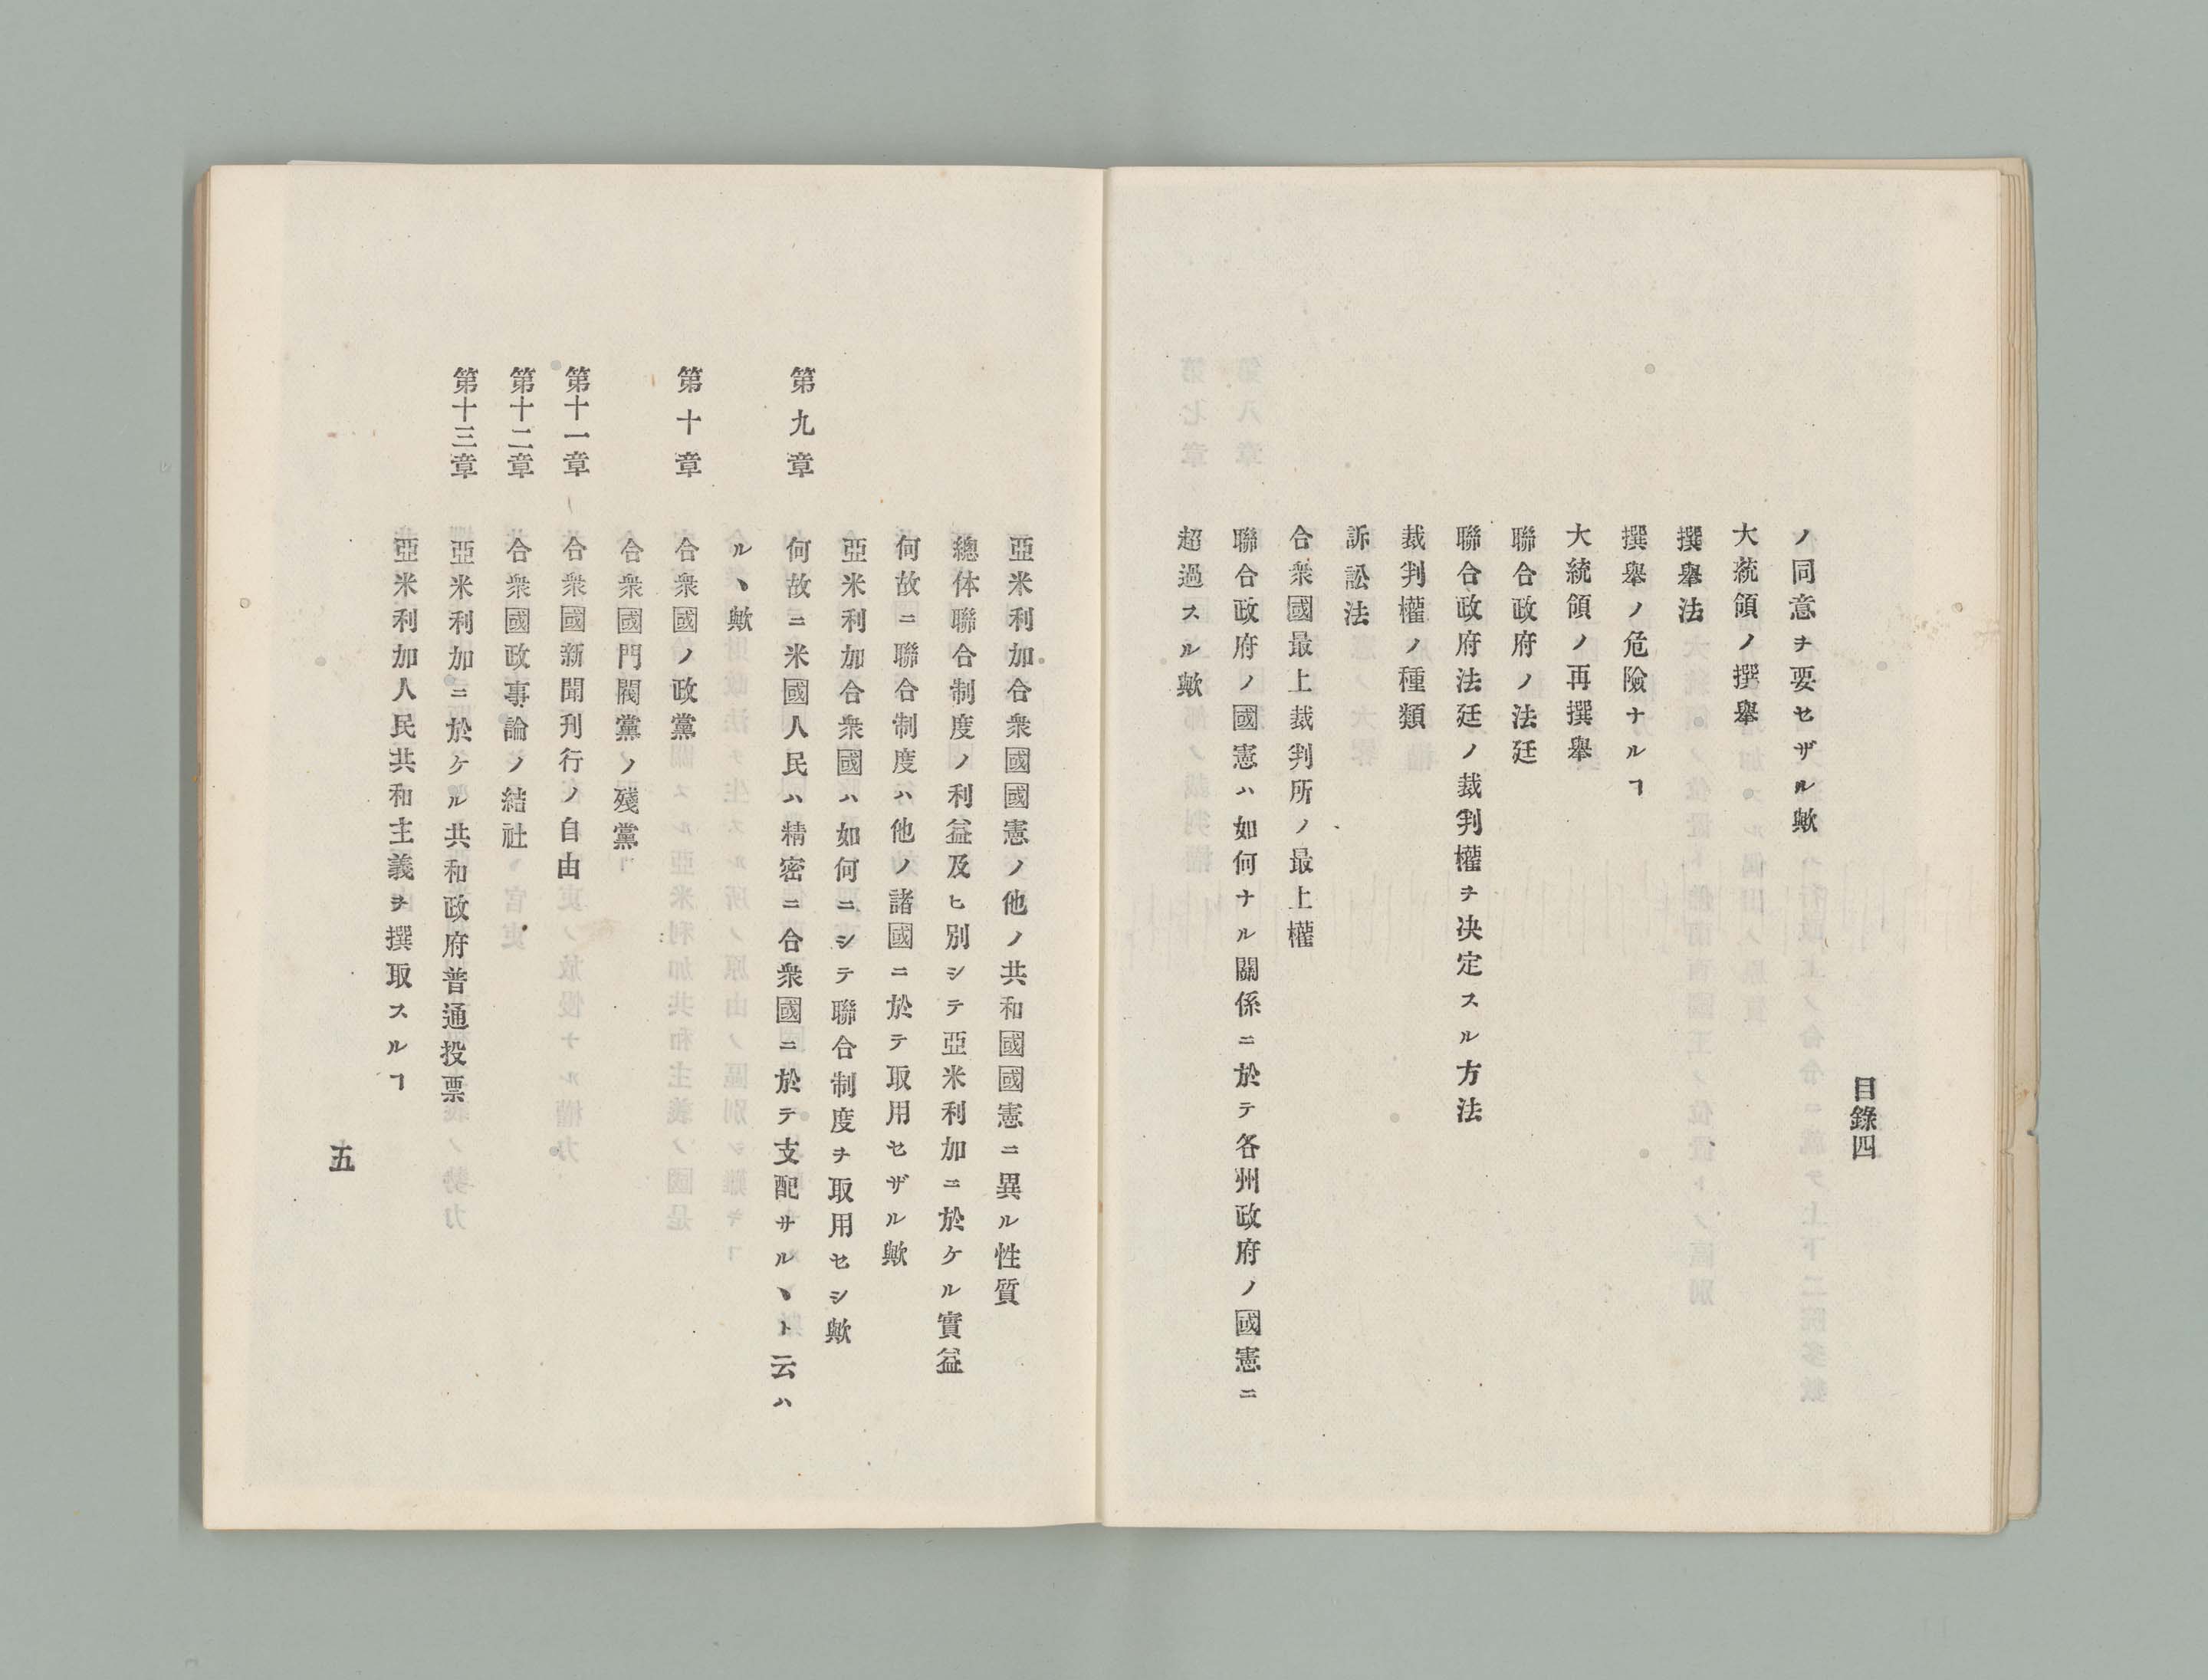 目錄四
ノ同意ヲ要セザル歟
大統領ノ撰擧
撰擧法
撰擧ノ危險ナルヿ
大統領ノ再撰擧
聯合政府ノ法廷
聯合政府法廷ノ裁判權ヲ决定スル方法
裁判權ノ種類
訴訟法
合衆國最上裁判所ノ最上權
聯合政府ノ國憲ハ如何ナル關係ニ於テ各州政府ノ國憲ニ
超過スル歟
亞米利加合衆國國憲ノ他ノ共和國國憲ニ異ル性質
總体聯合制度ノ利益及ヒ別シテ亞米利加ニ於ケル實益
何故ニ聯合制度ハ他ノ諸國ニ於テ取用セザル歟
亞米利加合衆國ハ如何ニシテ聯合制度ヲ取用セシ歟
第九章 何故ニ米國人民ハ精密ニ合衆國ニ於テ支配サルヽト云ハ
ルヽ歟
第十章 合衆國ノ政黨
合衆國門閥黨ノ殘黨
第十一章 合衆國新聞刊行ノ自由
第十二章 合衆國政事論ノ結社
第十三章 亞米利加ニ於ケル共和政府普通投票
亞米利加人民共和主義ヲ撰取スルヿ
五